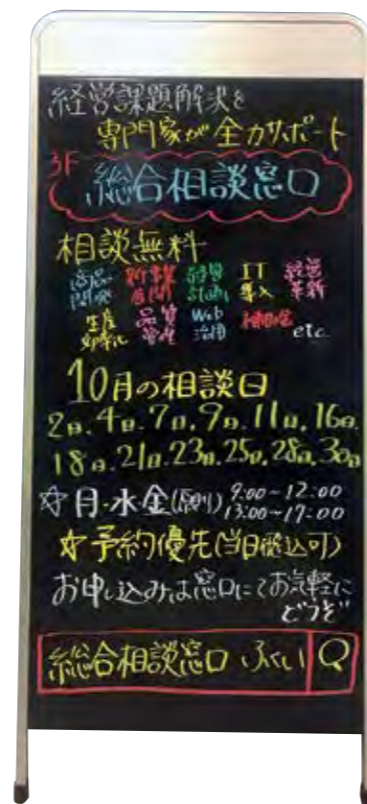 経営課題解決を
専門家が全力サポート
3F
総合相談窓口
相談無料
商品開発 新事業展開 経営計画 IT導入 経営革新
生産効率化 品質管理 Web活用 補助金 etc.
10月の相談日
2日.4日.7日.9日.11日.16日.
18日.21日.23日.25日.28日.30日
☆月・水・金(原則) 9:00~12:00
13:00~17:00
☆予約優先(当日飛込可)
お申し込みは窓口にてお気軽に
どうぞ
総合相談窓口 ふくい Q